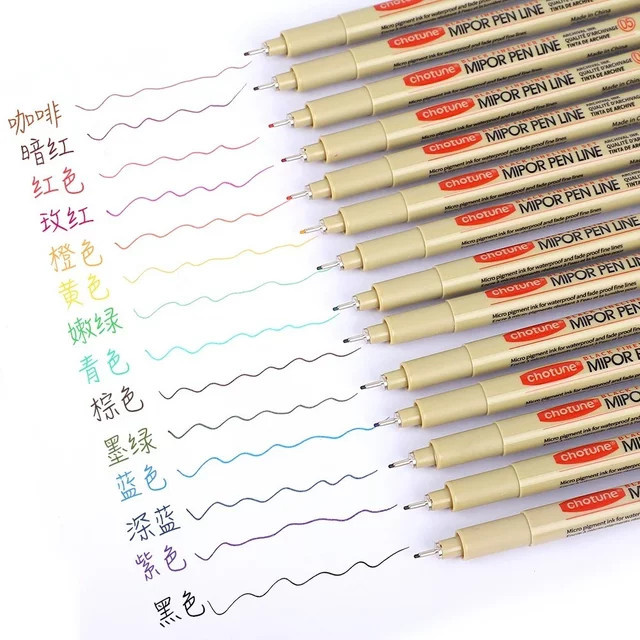 咖啡
暗红
红色
玫红
橙色
黄色
嫩绿
青色
棕色
墨绿
蓝色
深蓝
紫色
黑色
chotune MIPOR PEN LINE
Made in China
chotune MIPOR PEN LINE
ARCHIVAL INK
QUALITÉ D'ARCHIVAGE
TINTA DE ARCHIVE
Made in China
05
chotune MIPOR PEN LINE
Micro pigment ink for waterproof and fade proof fine lines
chotune MIPOR PEN LINE
Micro pigment ink for waterproof and fade proof fine lines
chotune MIPOR PEN LINE
Micro pigment ink for waterproof and fade proof fine lines
chotune MIPOR PEN LINE
Micro pigment ink for waterproof and fade proof fine lines
chotune MIPOR PEN LINE
Micro pigment ink for waterproof and fade proof fine lines
chotune MIPOR PEN
chotune MIPOR
chotune MIPOR
chotune MIPO
chotune